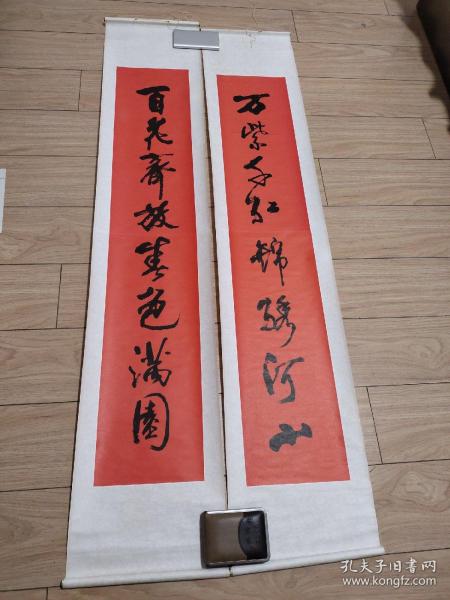 万紫千红锦绣河山
百花齐放春色满园
孔夫子旧书网
www.kongfz.com